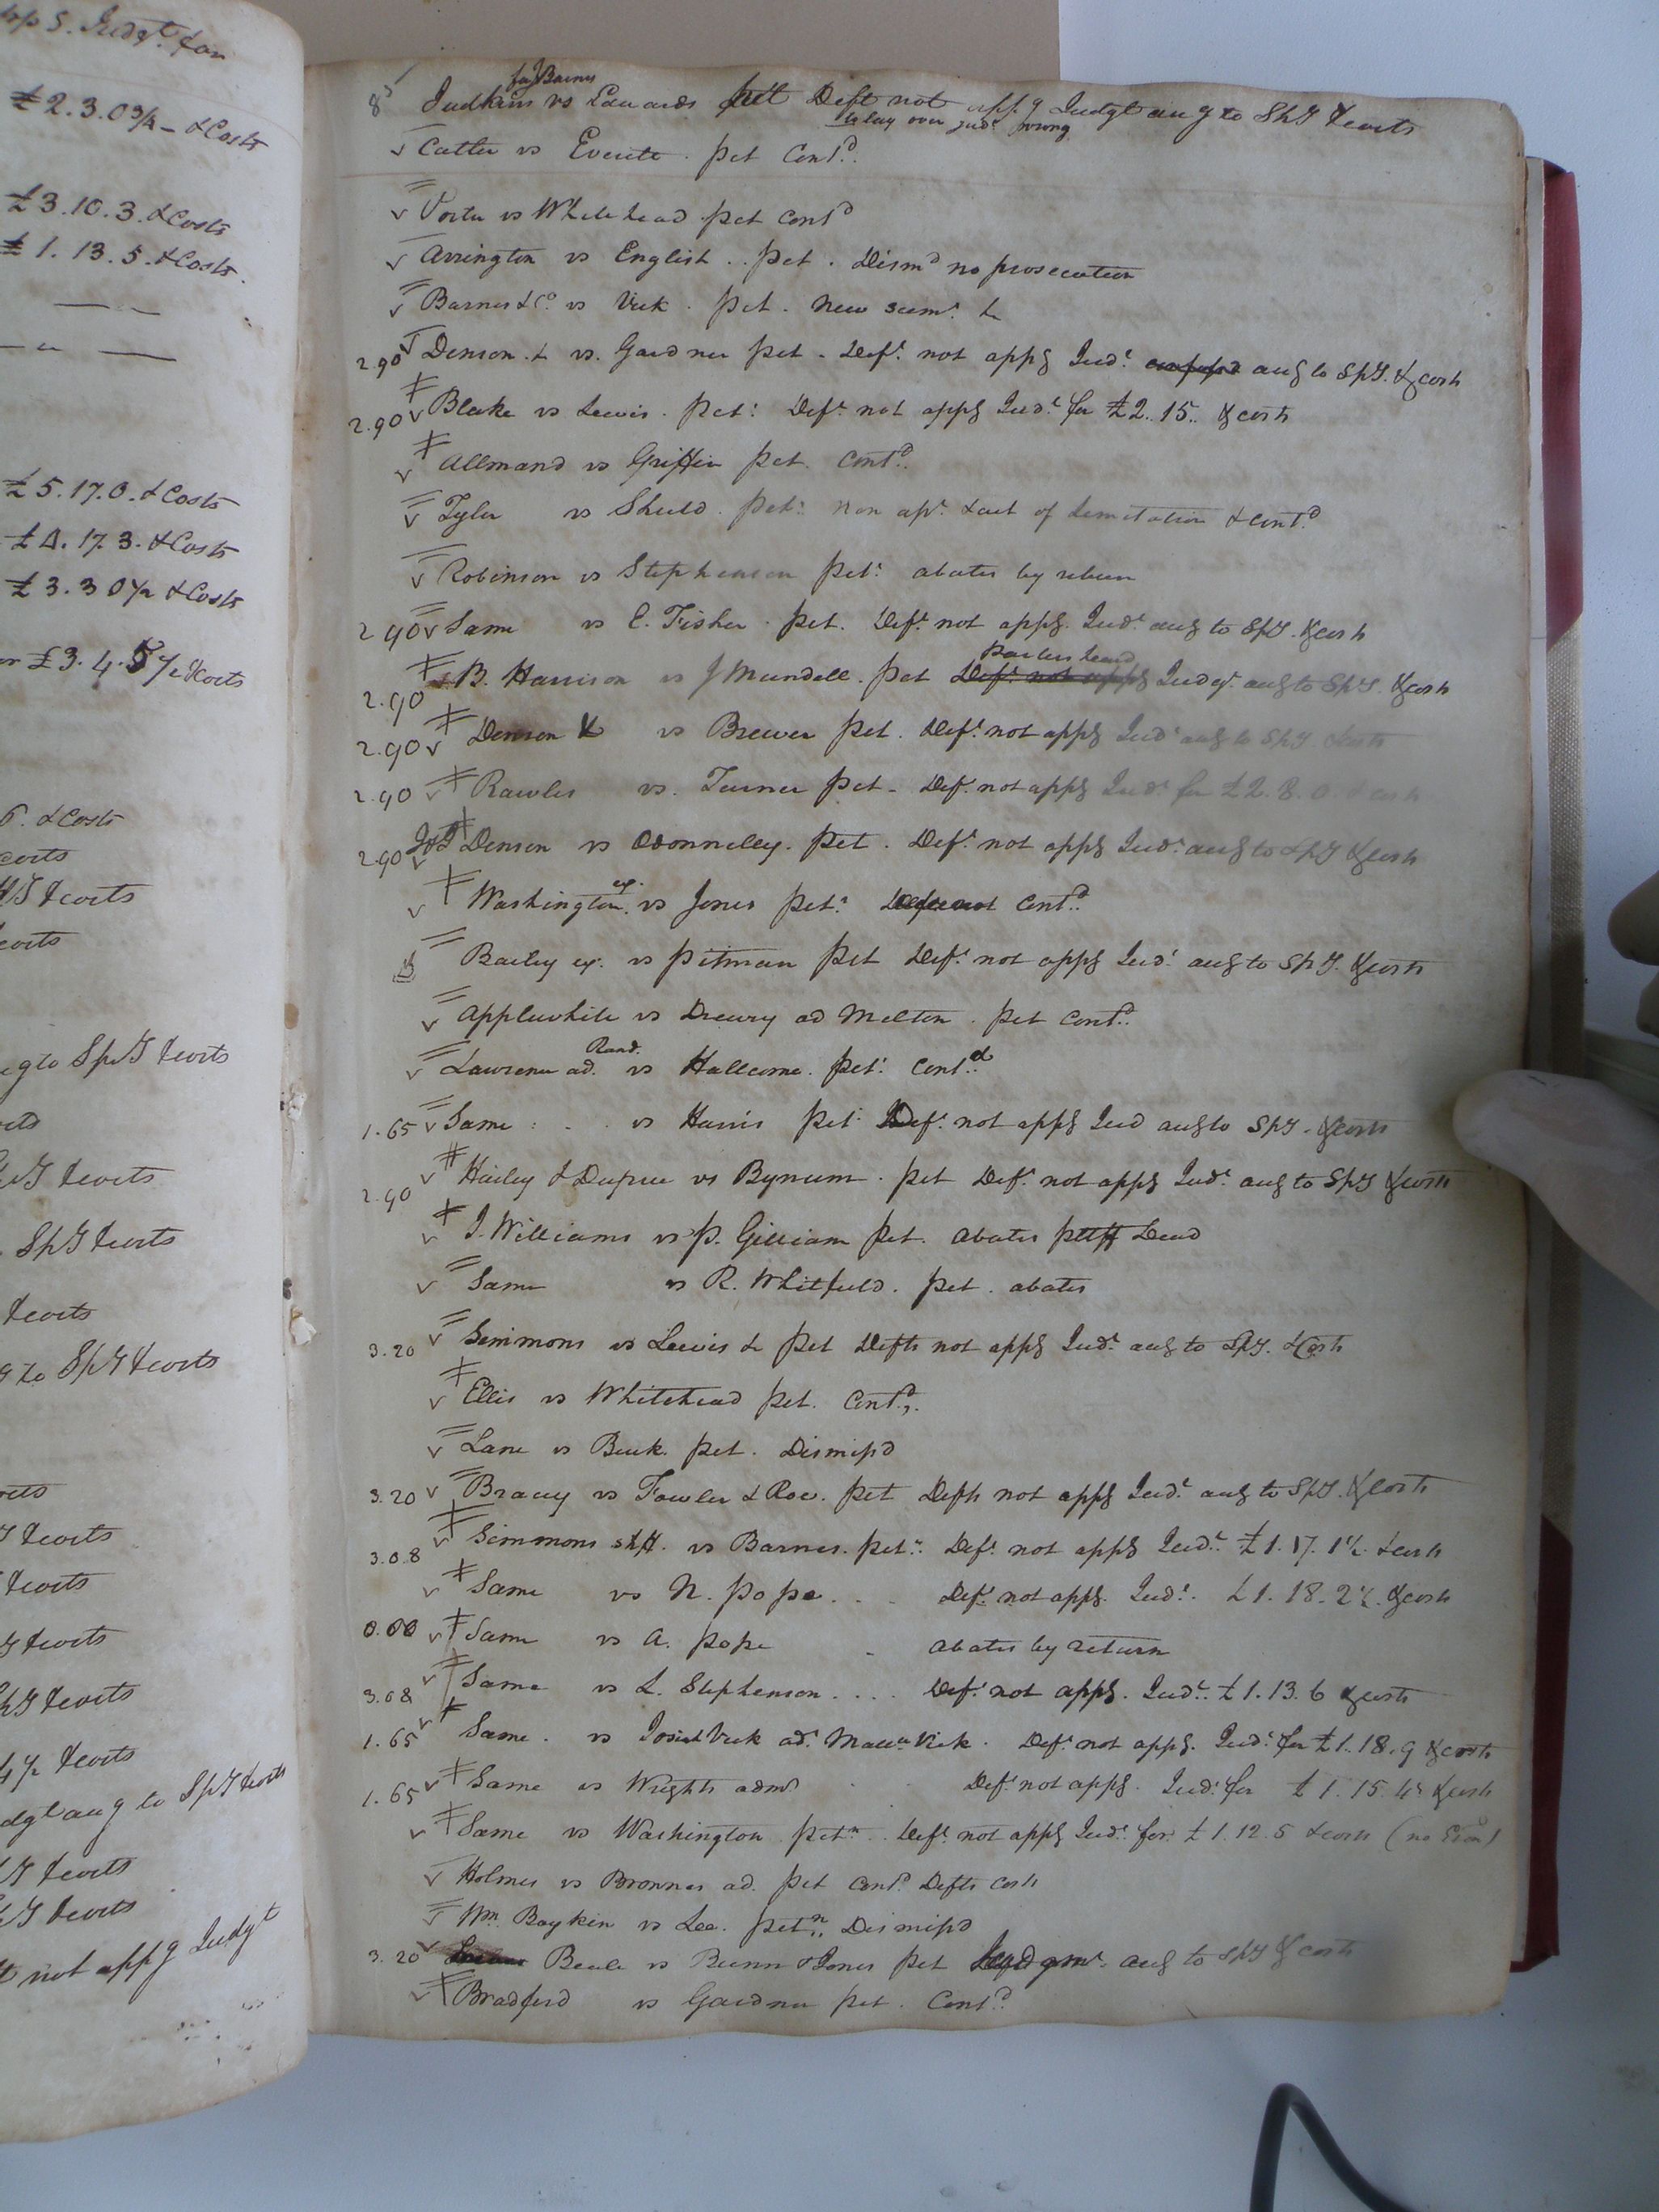 pp g. Judgt. for
£2.3.0¾ - & Costs
£3.10.3. & Costs
£1.13.5. & Costs.
£5.17.0. & Costs
£4.17.3. & Costs
£3.3.0½ & Costs
or £3.4.5½ & Costs
6. & Costs
Costs
& Costs
Costs
g to SpS & Costs
& Costs
SpS & Costs
& Costs
g to SpS & Costs
& Costs
& Costs
& Costs
4½ & Costs
dgt aug to SpS & Costs
& Costs
& Costs
t not appg Judgt
for J Barnes
Judkins vs Edwards Deft not appg Judgt aug to SpS & Costs
to lay over Judt wrong
Cutler vs Everite. pet Contd.
Porter vs Whitehead. pet Contd
Arrington vs English.. pet. Dismd no prosecution
Barnes & Co. vs Vick. pet. New sums. &
2.90 Denson. & vs. Gardner pet - Deft. not appg Judt. aug to SpS. & costs
2.90 Blake vs Lewis. pet: Deft. not appg Judt. for £2..15.. & costs
Allmand vs Griffin pet. Contd.
Tyler vs Shield. pet: non apt. & act of Limitation & contd
Robinson vs Stephenson pet: abates by return
2.90 Same vs E. Fisher. pet. Deft. not appg. Judt. aug to SpS. & costs
Parties heard
2.90 B. Harrison vs J Mundell. pet Deft. not appg Judgt. aug to SpS. & costs
2.90 Denson & vs Brewer pet. Deft. not appg Judt aug to SpS. & costs
2.90 Rawles vs. Turner pet - Deft. not appg Judt. for £2.8.0. & costs
2.90 Denson vs Odonneley. pet. Deft. not appg Judt. aug to SpS & costs
Washington ex. vs Jones pet: Contd.
Bailey ex. vs Pitman pet Deft. not appg Judt. aug to SpS. & costs
Applewhite vs Drewry ad Melton. pet Contd.
Rand.
Lawrence ad. vs Hallcome. pet: Contd.
1.65 Same : . . vs Harris pet: Deft. not appg Jud aug to SpS. & costs
2.90 Hailey & Dupree vs Bynum. pet Deft. not appg Judt. aug to SpS & costs
J. Williams vs P. Gilliam pet. abates pltff Dead
Same vs R. Whitfield. pet. abates
3.20 Simmons vs Lewis & pet Defts not appg Judt. aug to SpS. & Costs
Ellis vs Whitehead pet. Contd.
Lane vs Beuk. pet. Dismissd
3.20 Bracey vs Fowler & Roe. pet Defts not appg Judt. aug to SpS. & costs
3.08 Simmons shff. vs Barnes. pet: Deft. not appg Judt. £1.17.1½ & costs
Same vs N. Pope. . . Deft. not appg. Judt. £1.18.2½. & costs
0.00 Same vs A. Pope - abates by return
3.08 Same vs L. Stephenson. ... Deft. not appg. Judt. £1.13.6 & costs
1.65 Same. vs Josiah Vick ad. Vick. Deft. not appg. Judt. for £1.18.9 & costs
1.65 Same vs Wrights adm. Deft. not appg. Judt. for £1.15.4 & costs
Same vs Washington petn. Deft. not appg Judt. for £1.12.5 & costs
Holmes vs Bronner ad. pet Contd. Defts Costs
Wm. Boykin vs Lee. petn. Dismissd
3.20 Beale vs Bunn & Jones pet aug to SpS & costs
Bradford vs Gardner pet. Contd.